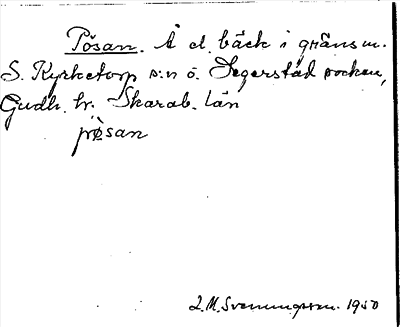 Pösan. Å el. bäck i gräns m.
S. Kyrketorp s:n o. Segerstad socken,
Gudh. hr. Skarab. län
pø̀san
L.M. Svenungsson. 1950